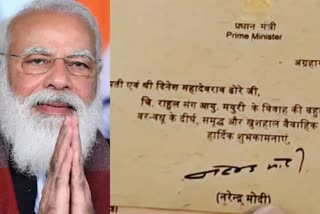 प्रधान मंत्री
Prime Minister
एवं श्री दिनेश महादेवराव ढोरे जी,
चि. राहुल संग आयु. मयुरी के विवाह की
वर-वधू के दीर्घ, समृद्ध और खुशहाल वैवाहिक
हार्दिक शुभकामनाएं,
(नरेन्द्र मोदी)